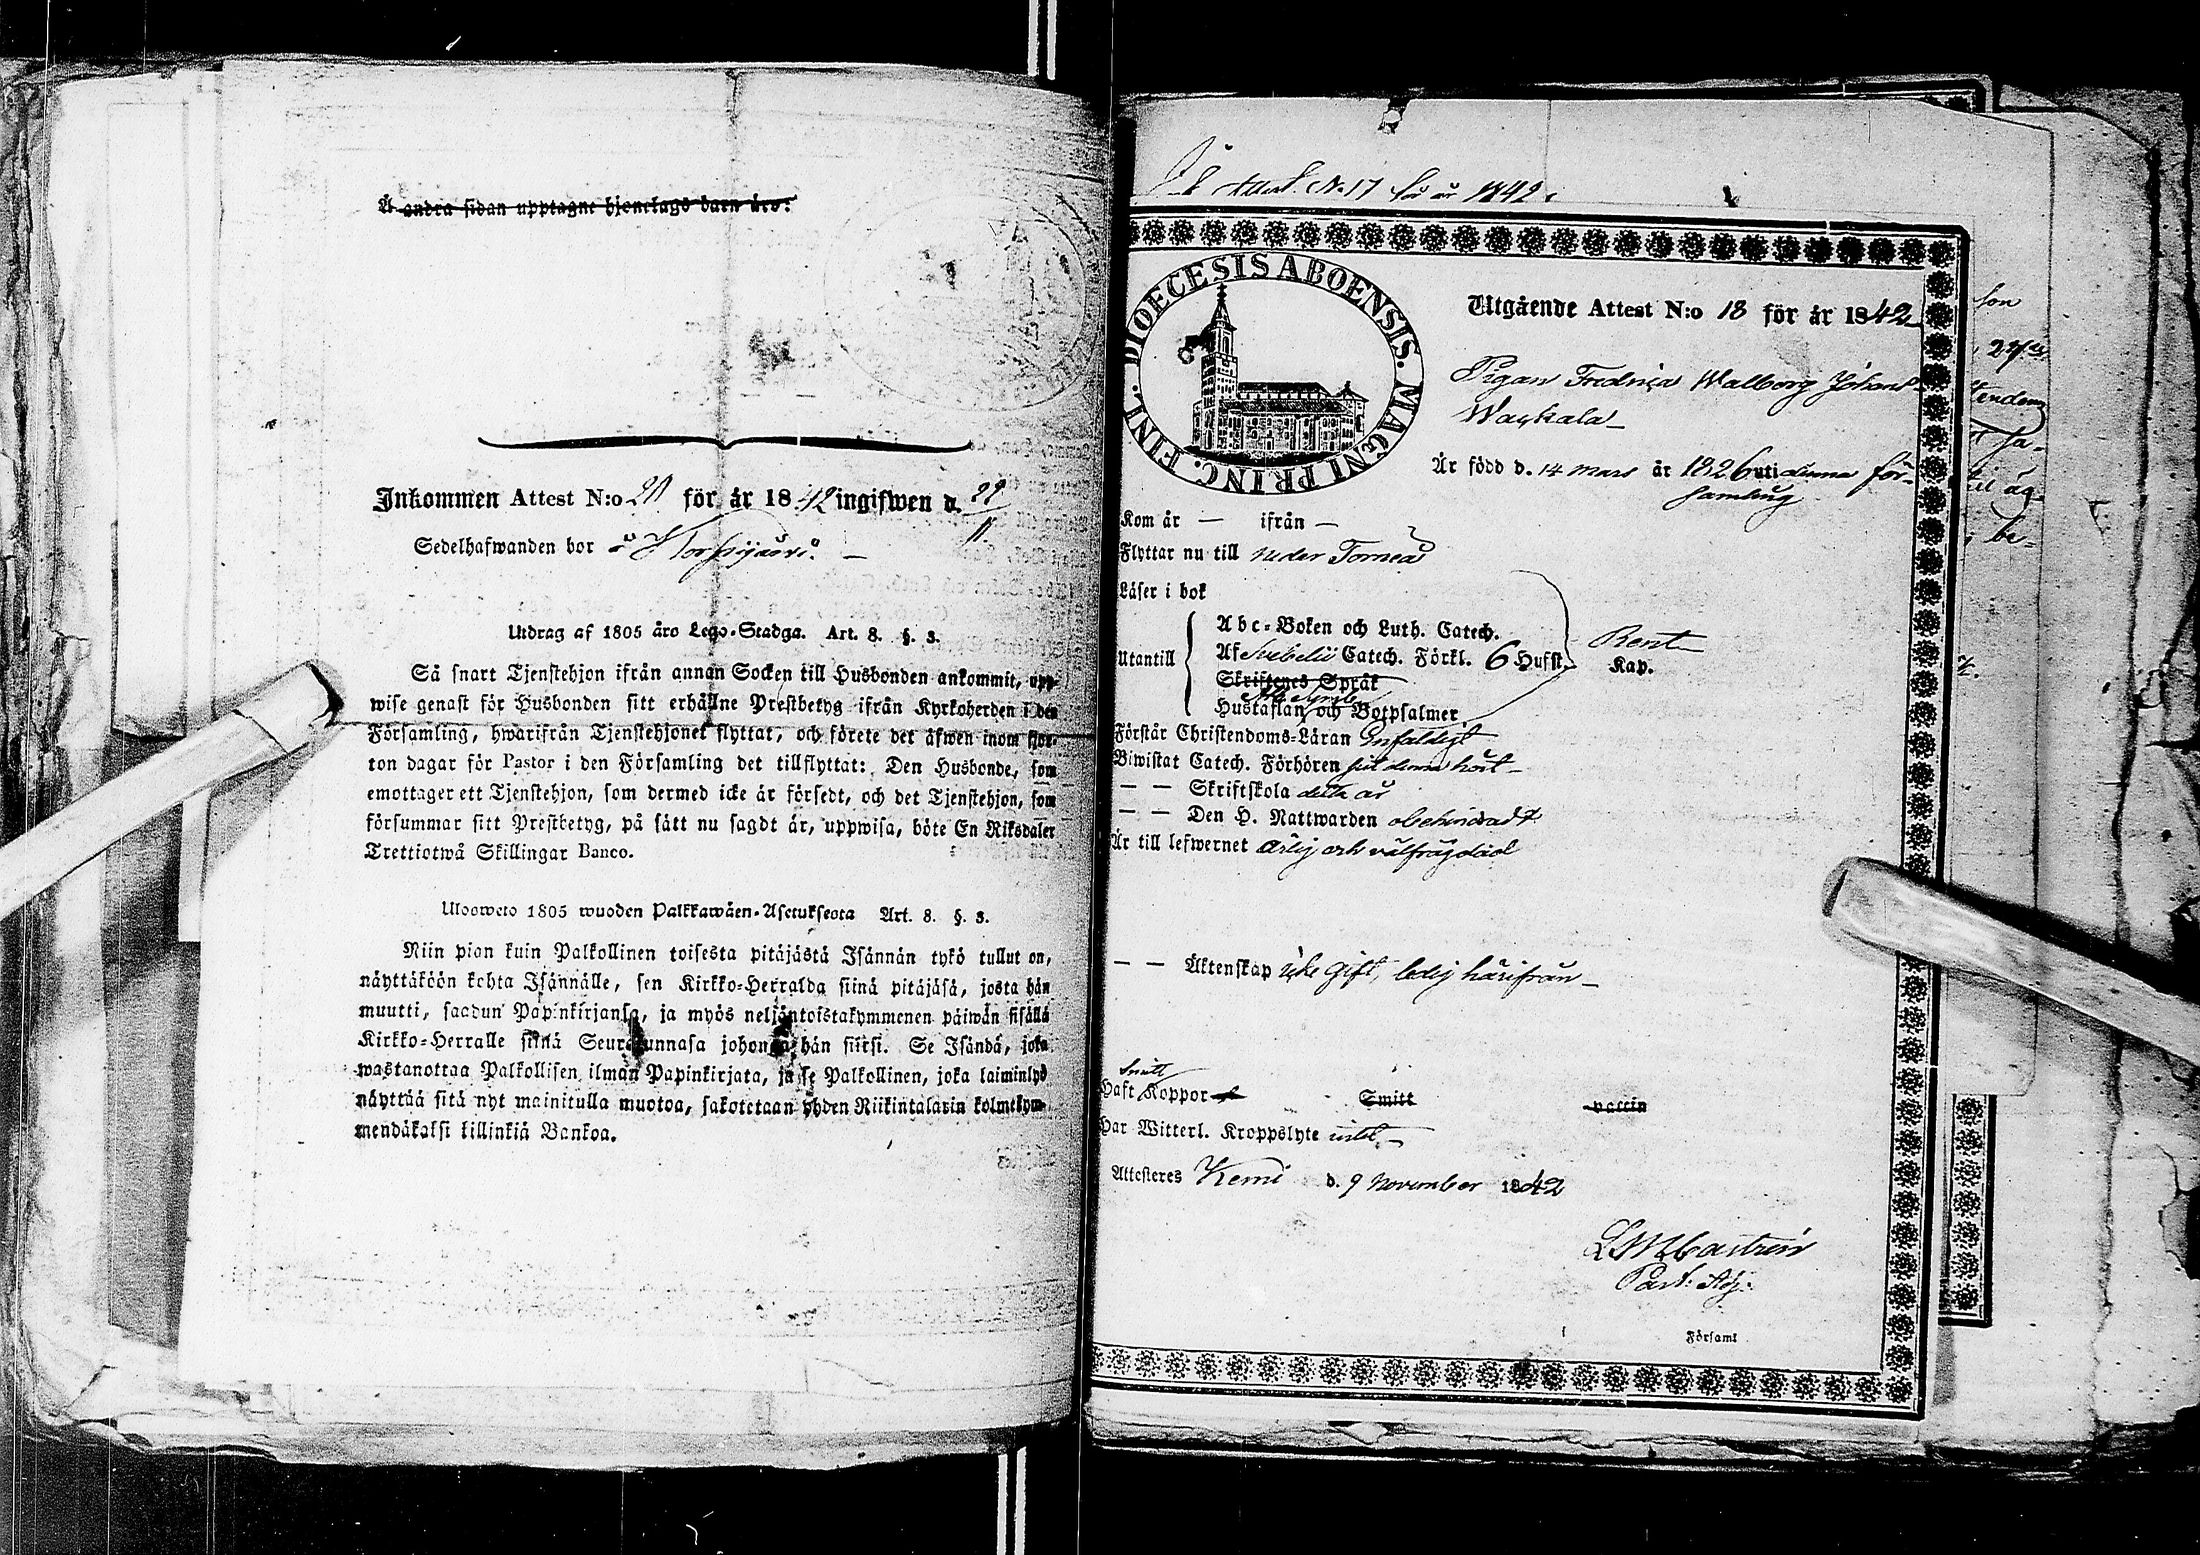 Å andra sidan upptagne hjonelags barn äro:
Inkommen Attest N:o 20 för år 1842 ingifwen d. 29/11.
Sedelhafwanden bor å Korpijärvi.
Utdrag af 1805 års Lego-Stadga. Art. 8. §. 3.
Så snart Tjenstehjon ifrån annan Socken till Husbonden ankommit, upp-
wise genast för Husbonden sitt erhållne Prestbetyg ifrån Kyrkoherden i den
Församling, hwarifrån Tjenstehjonet flyttat, och förete det äfwen inom fjor-
ton dagar för Pastor i den Församling det tillflyttat: Den Husbonde, som
emottager ett Tjenstehjon, som dermed icke är försedt, och det Tjenstehjon, som
försummar sitt Prestbetyg, på sätt nu sagdt är, uppwisa, böte En Riksdaler
Trettiotwå Skillingar Banco.
Ulosweto 1805 wuoden Palkkawäen-Asetuksesta Art. 8. §. 3.
Niin pian kuin Palkollinen toisesta pitäjästä Isännän tykö tullut on,
näyttäköön kohta Isännälle, sen Kirkko-Herralda siinä pitäjäsä, josta hän
muutti, saadun Papinkirjansa, ja myös neljäntoistakymmenen päiwän sisällä
Kirkko-Herralle siinä Seurakunnasa johonga hän siirsi. Se Isändä, joka
wastanottaa Palkollisen ilman Papinkirjata, ja se Palkollinen, joka laiminlyö
näyttää sitä nyt mainitulla muotoa, sakotetaan yhden Riikintalarin kolmekym-
mendäkaksi killinkiä Bankoa.
Attest. No 17 för år 1842.
DIOECESIS ABOENSIS. MAGNI PRINC. FINL.
Utgående Attest N:o 18 för år 1842
Pigan Fredrica Walborg Johans
Waykala
Är född d. 14 mars år 1826 uti denna för-
samling
Kom år — ifrån —
Flyttar nu till neder Torneå
Läser i bok
Abc-Boken och Luth. Catech.
Utantill Af Svebelii Catech. Förkl. 6 Hufst. Rent Kap.
Skriftenes Språk
Hustaflan, och Botpsalmer
Förstår Christendoms-Läran Enfaldigt
Biwistat Catech. Förhören sist denna höst
— — Skriftskola detta år
— — Den H. Nattwarden obehindradt
Är till lefwernet ärlig och välfrägdad
— — Äktenskap icke gift, ledig härifrån
Smitt
Haft Koppor Smitt vaccin
Har Witterl. Kroppslyte intet
Attesteres Kemi d. 9 November 1842
L M Castrén
Past. Adj.
Församl